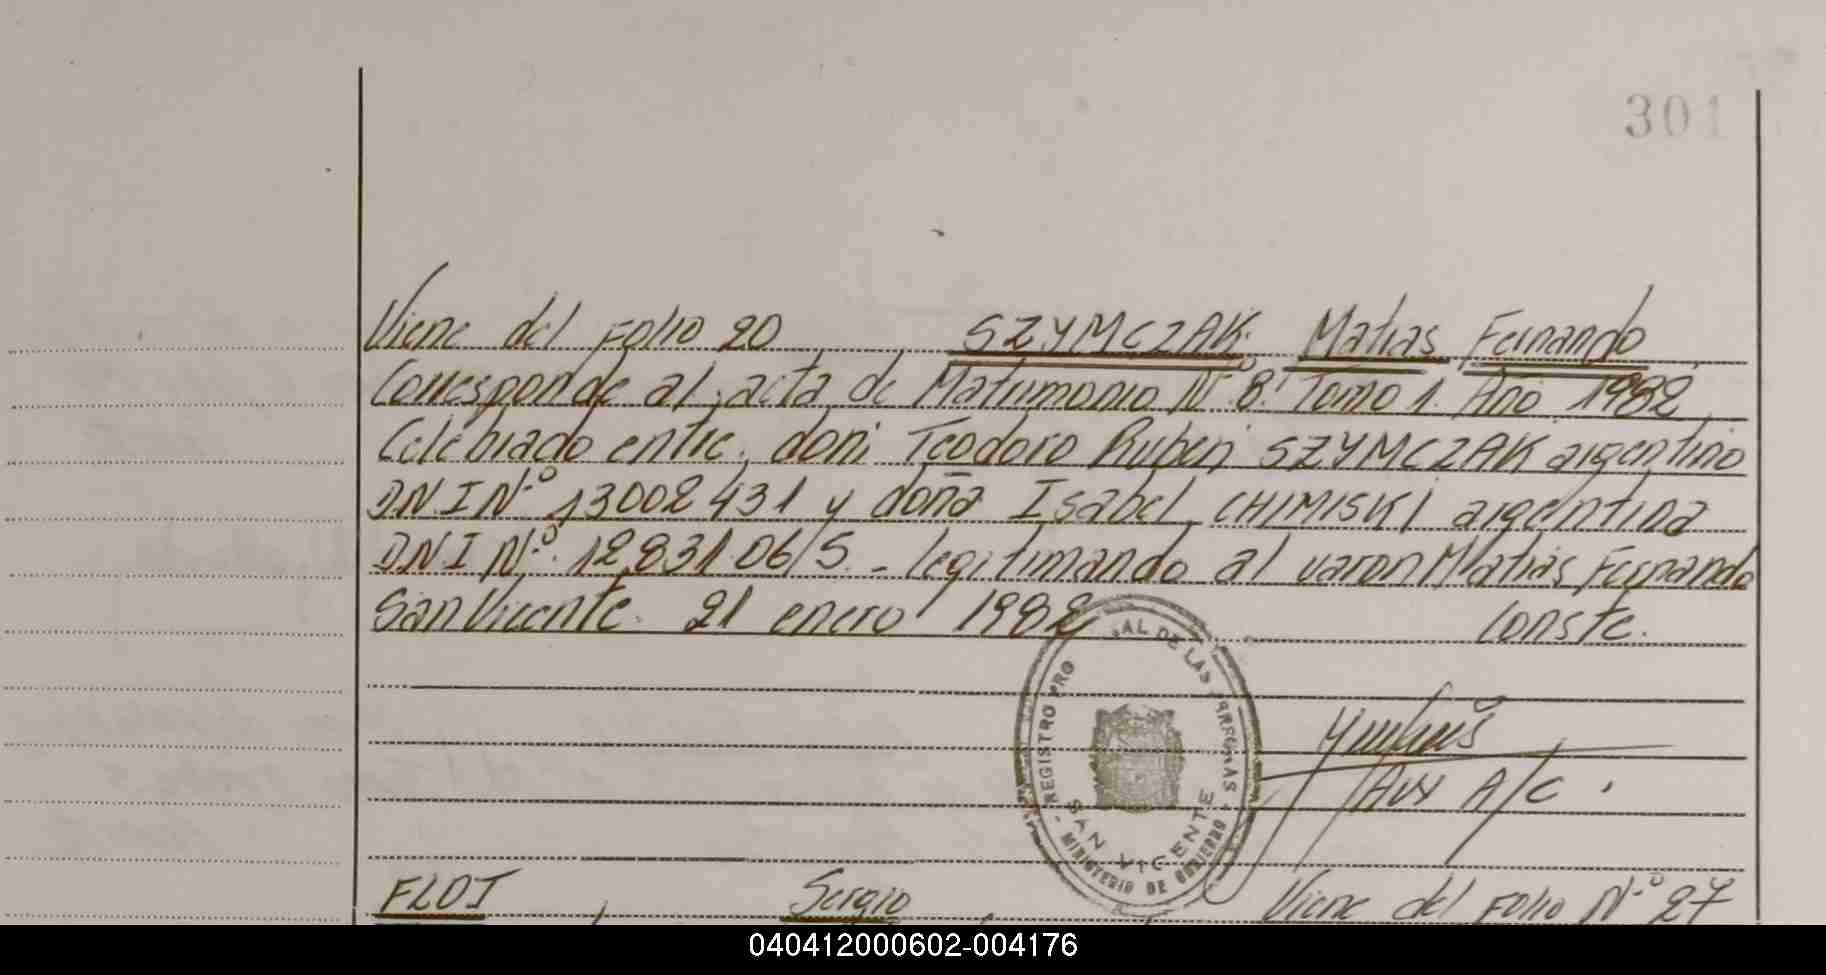 301
Viene del Folio 20 SZYMCZAK Matias Fernando
Corresponde al acta de Matrimonio Nº 8. Tomo 1. Año 1982
Celebrado entre, don Teodoro Ruben SZYMCZAK argentino
D.N.I Nº 13002431 y doña Isabel CHIMISKI argentina
D.N.I Nº 12.831.065. - legitimando al varon Matias Fernando
San Vicente. 21 enero 1982 Conste.
AL DE LAS
REGISTRO PRO
SAN VICENTE
MINISTERIO DE GOBIERNO
Aux A/C.
FLOI, Sergio, Viene del Folio Nº 27
040412000602-004176